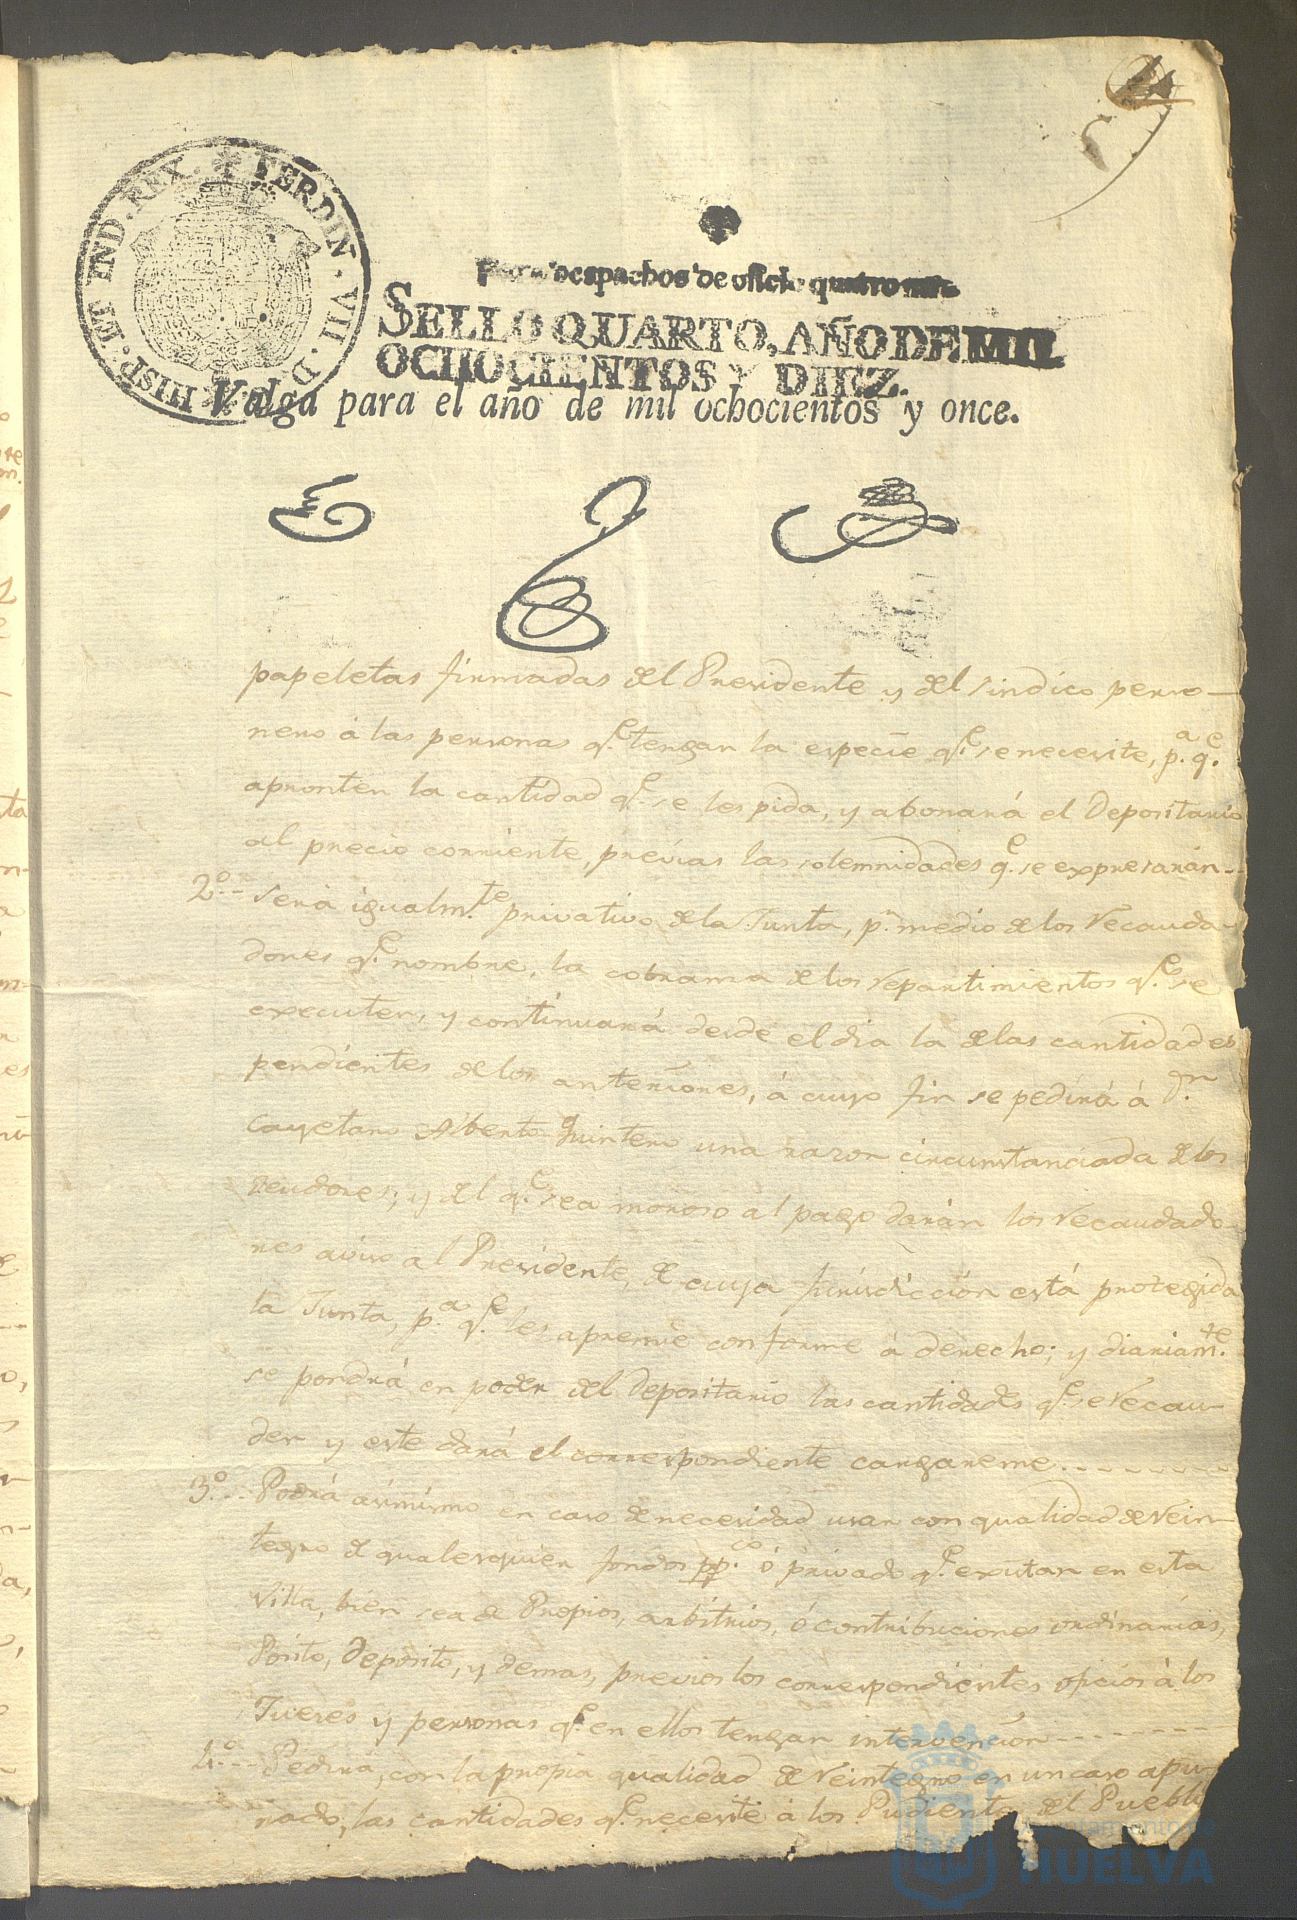 FERDIN. VII. D. G. HISP. ET IND. REX.
Para despachos de oficio quatro mrs.
SELLO QUARTO, AÑO DE MIL
OCHOCIENTOS Y DIEZ.
Valga para el año de mil ochocientos y once.
papeletas firmadas del Presidente y del sindico perso-
nero á las personas q.e tengan la especie q.e se necesite, p.a q.e
apronten la cantidad q.e se les pida, y abonará el Depositario
al precio corriente, previas las solemnidades q.e se expresarán--
2.o-- Será igualm.te privativo de la Junta, p.r medio de los recauda-
dores q.e nombre, la cobranza de los repartimientos q.e se
executen, y continuará desde el dia la de las cantidades
pendientes de los anteriores, á cuyo fin se pedirá á D.n
Cayetano Alberto Quintero una razon circunstanciada de los
deudores; y del q.e sea moroso al pago darán los recaudado-
res aviso al Presidente, de cuya jurisdicción está protegida
la Junta, p.a q.e les apremie conforme á derecho; y diariam.te
se pondrá en poder del Depositario las cantidades q.e se recau-
den y este dará el correspondiente cargareme.--------
3.o-- Podrá asimismo en caso de necesidad usar con qualidad de rein-
tegro de qualesquier fondos pp.cos ó privado q.e existan en esta
Villa, bien sea de Propios, arbitrios, ó contribuciones ordinarias,
Pósito, Deposito, y demas, previos los correspondientes oficios á los
Jueces y personas q.e en ellos tengan intervencion------
4.o-- Pedirá, con la propia qualidad de reintegro en un caso apu-
rado, las cantidades q.e necesite á los Pudientes del Pueblo
Ayuntamiento de
HUELVA